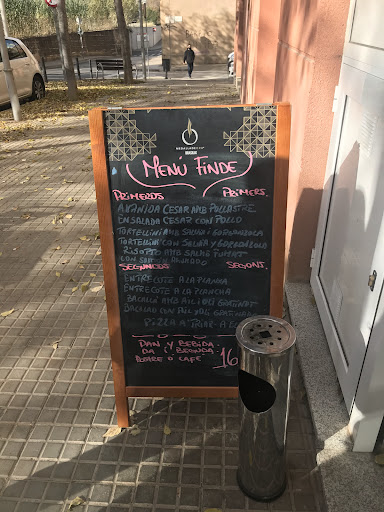 MENÚ FINDE
PRIMEROS PRIMERS.
AMANIDA CESAR AMB POLLASTRE
ENSALADA CESAR CON POLLO
TORTELLINI AMB SALVIA I GORGONZOLA
TORTELLINI CON SALVIA Y GORGONZOLA
RISOTTO AMB SALMÓ FUMAT
CON SALMON AHUMADO
SEGUNDOS SEGONS.
ENTRECOTE A LA PLANXA
ENTRECOTE A LA PLANCHA
BACALLÀ AMB ALLIOLI GRATINAT
BACALAO CON ALLIOLI GRATINADO
PIZZA A TRIAR - A
PAN Y BEBIDA
PA I BEGUDA
POSTRE O CAFE 16